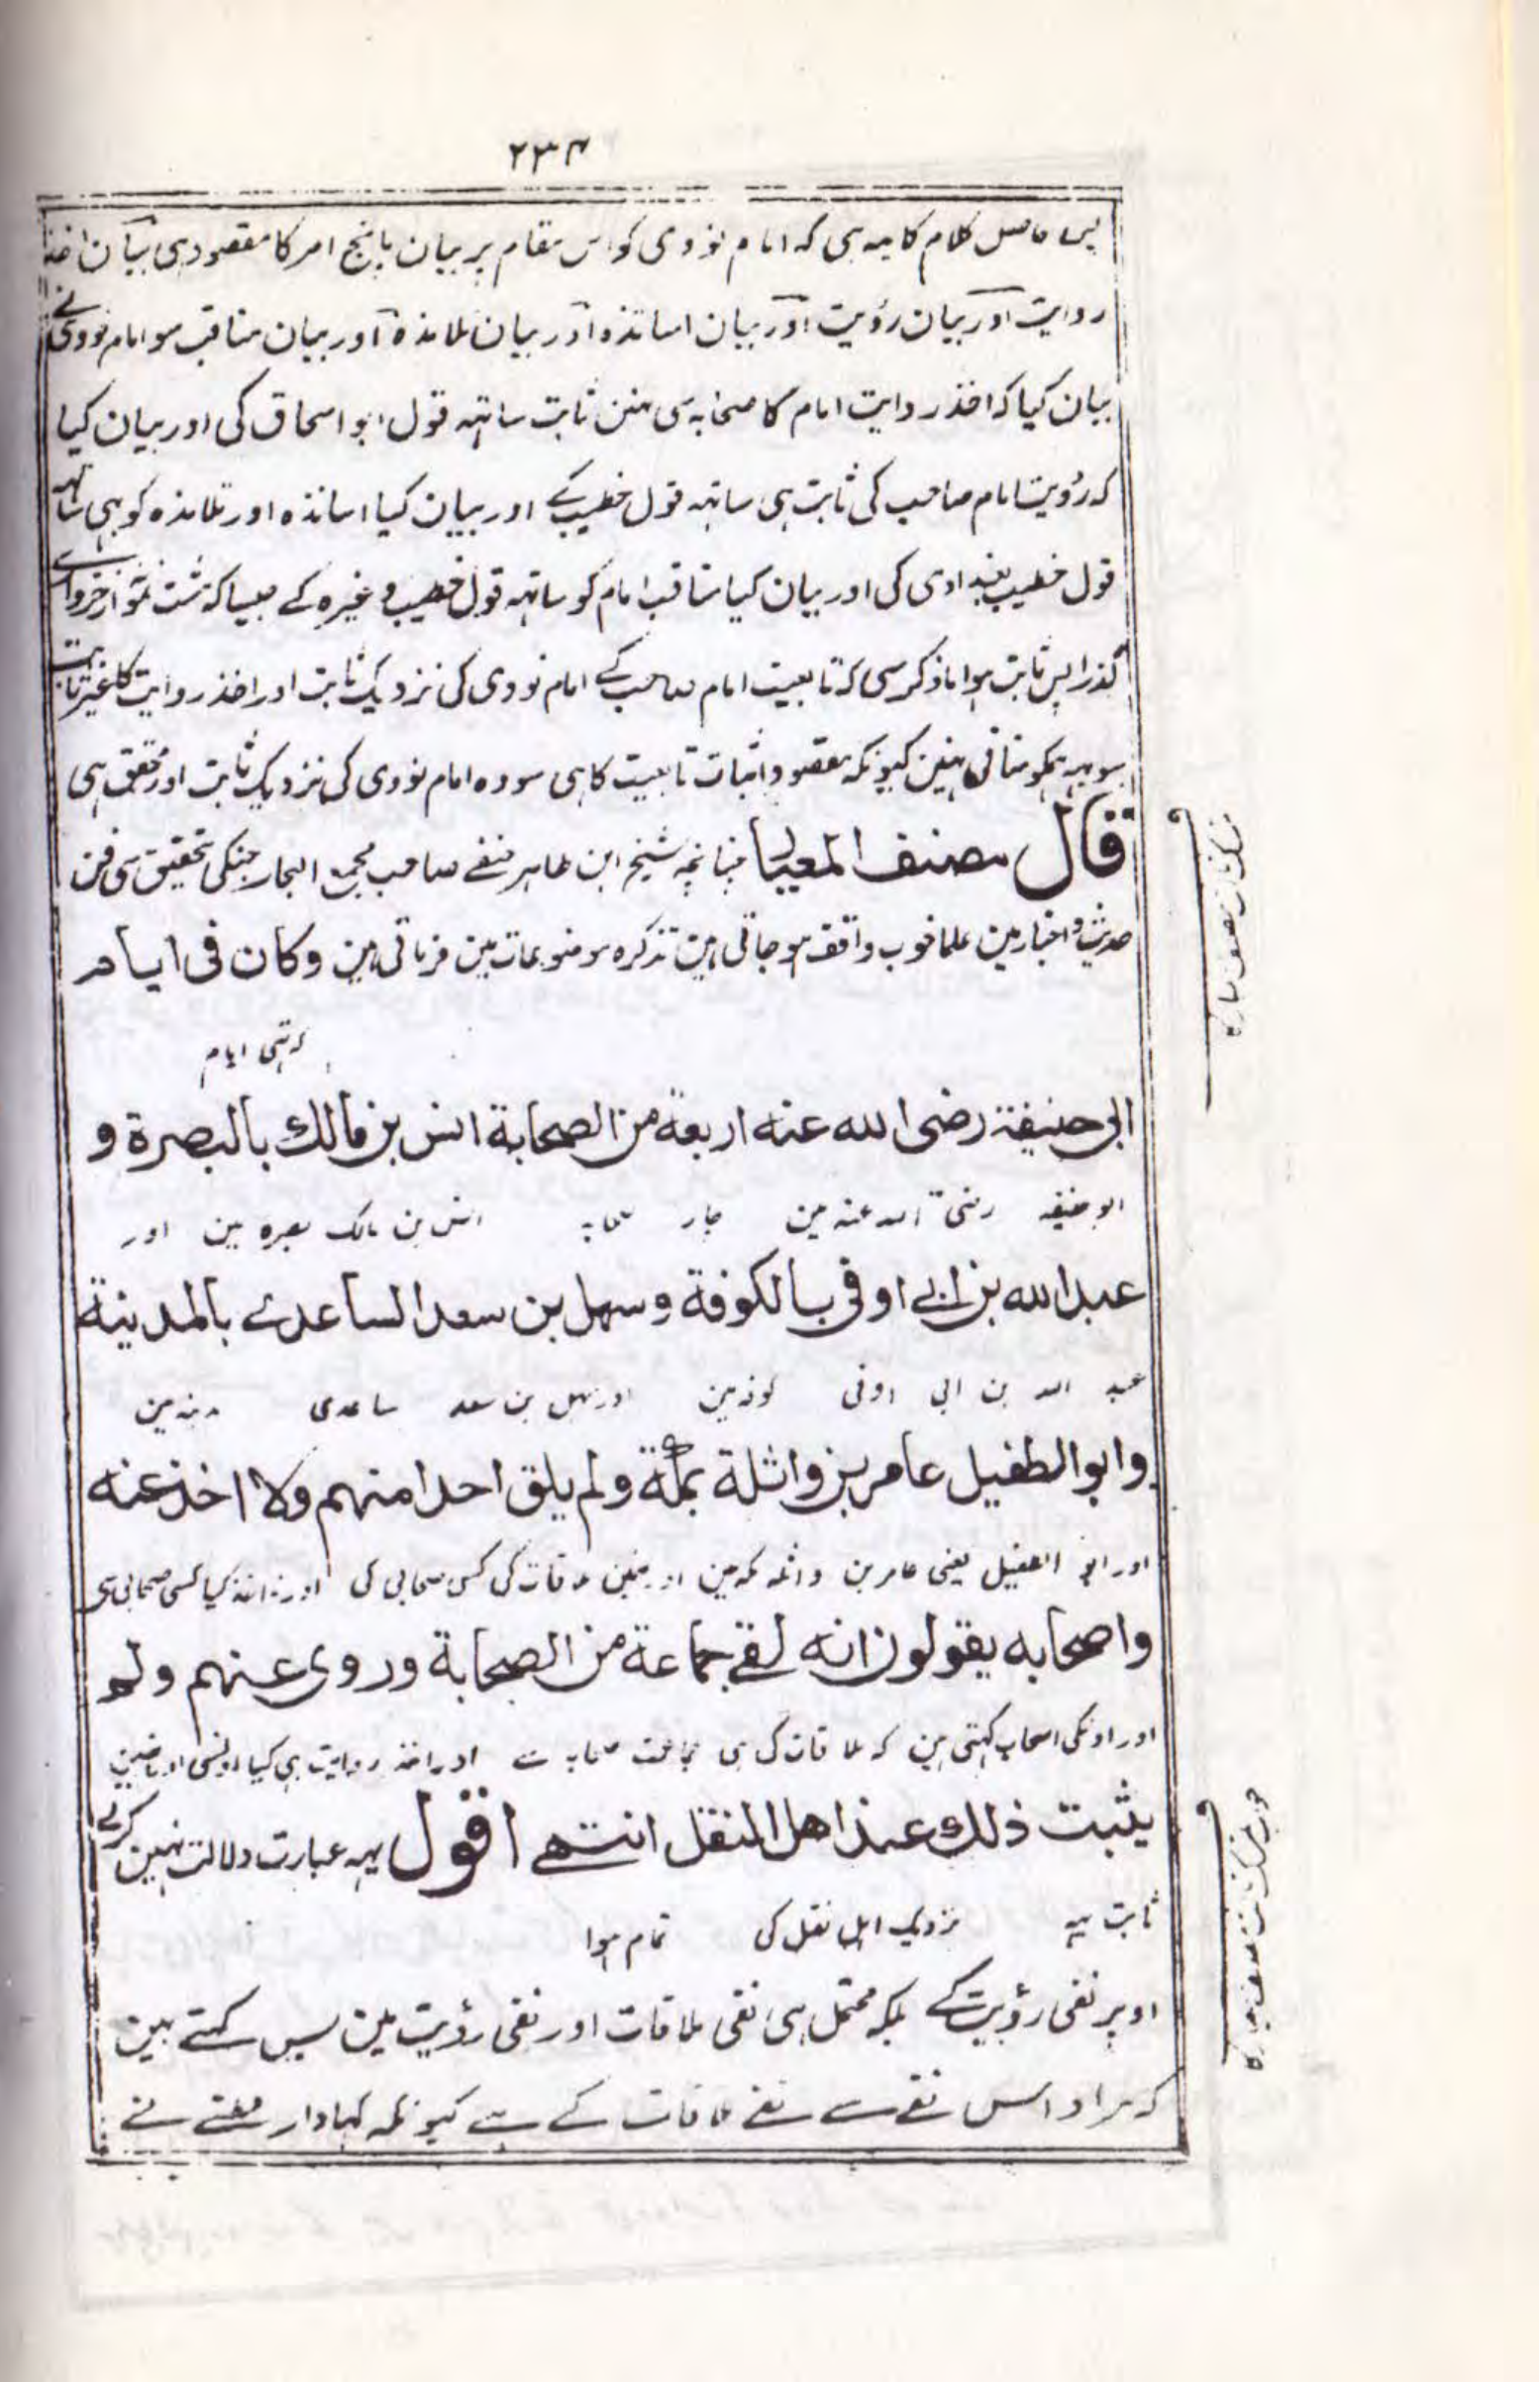 ۲۳۴
پس حاصل کلام کا یہ ہی کہ امام نووی کو اس مقام پر بیان پانچ امر کا مقصود ہی بیان اخذ
روایت اور بیان رؤیت اور بیان اساتذہ اور بیان تلامذہ اور بیان مناقب سو امام نووی نے
بیان کیا کہ اخذ روایت امام کا صحابہ سی نہین ثابت ساتہہ قول ابو اسحاق کی اور بیان کیا
کہ رؤیت امام صاحب کی ثابت ہی ساتہہ قول خطیب کے اور بیان کیا اساتذہ اور تلامذہ کو بہی ساتہہ
قول خطیب بغدادی کی اور بیان کیا مناقب امام کو ساتہہ قول خطیب وغیرہ کے جیسا کہ
گذرا پس ثابت ہوا ماذکر سی کہ تابعیت امام صاحب کے امام نووی کی نزدیک ثابت اور اخذ روایت کا غیر ثابت
سو یہہ ہمکو منافی نہین کیونکہ مقصود اثبات تابعیت کا ہی سو وہ امام نووی کی نزدیک ثابت اور محقق ہی
قال مصنف المعیار چنانچہ شیخ ابن طاہر حنفے صاحب مجمع البحار جنکی تحقیق سی فن
حدیث و اخبار مین علما خوب واقف ہو جاتی ہین تذکرہ موضوعات مین فرماتی ہین وكان فی ایام
کہ تہی ایام
ابی حنیفة رضی الله عنه اربعة من الصحابة انس بن مالك بالبصرة و
ابو حنیفہ رضی اللہ عنہ مین چار صحابہ انس بن مالک بصرہ مین اور
عبد الله بن ابی اوفی بالكوفة وسهل بن سعد الساعدے بالمدینة
عبد اللہ بن ابی اوفی کوفہ مین اور سہل بن سعد ساعدی مدینہ مین
وابو الطفیل عامر بن واثلة بمكة ولم یلق احدا منهم ولا اخذ عنه
اور ابو الطفیل یعنی عامر بن واثلہ مکہ مین اور نہین ملاقات کی کسی صحابی کی اور نہ اخذ کیا کسی صحابی سی
واصحابه یقولون انه لقے جماعة من الصحابة وروی عنهم ولم
اور اونکی اصحاب کہتی ہین کہ ملاقات کی ہی جماعت صحابہ سے اور اخذ روایت بہی کیا اونسی اور نہین
یثبت ذلك عند اهل النقل انتهے اقول یہہ عبارت دلالت نہین کرتے
ثابت یہہ نزدیک اہل نقل کی تمام ہوا
اوپر نفی رؤیت کے بلکہ محتمل ہی نفی ملاقات اور نفی رؤیت مین پس کہتے ہین
کہ مراد اس نفے سے نفے ملاقات کے ہے کیونکہ کہا دار قطنے نے